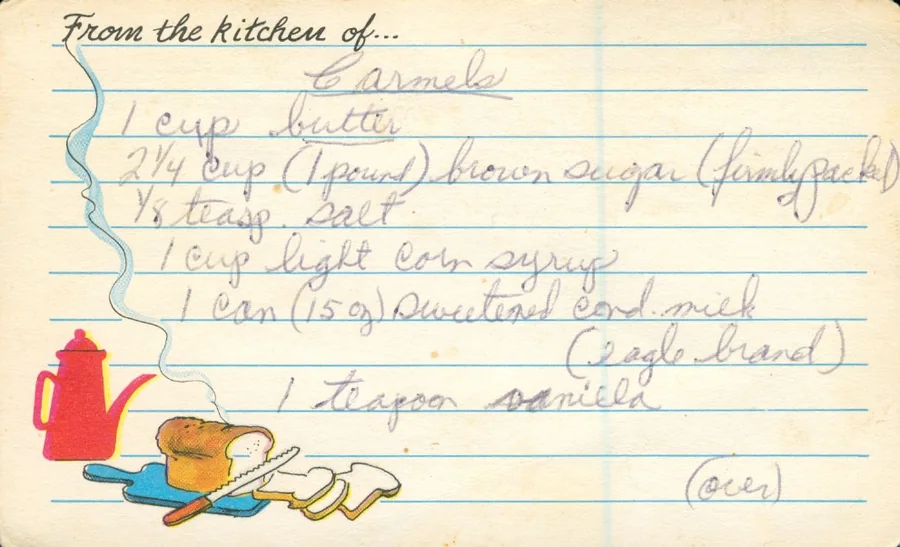 From the kitchen of...
Carmels
1 cup butter
2 1/4 cup (1 pound) brown sugar (firmly packed)
1/8 teasp. salt
1 cup light corn syrup
1 can (15 oz) sweetened cond. milk
(eagle brand)
1 teapoon vanilla
(over)